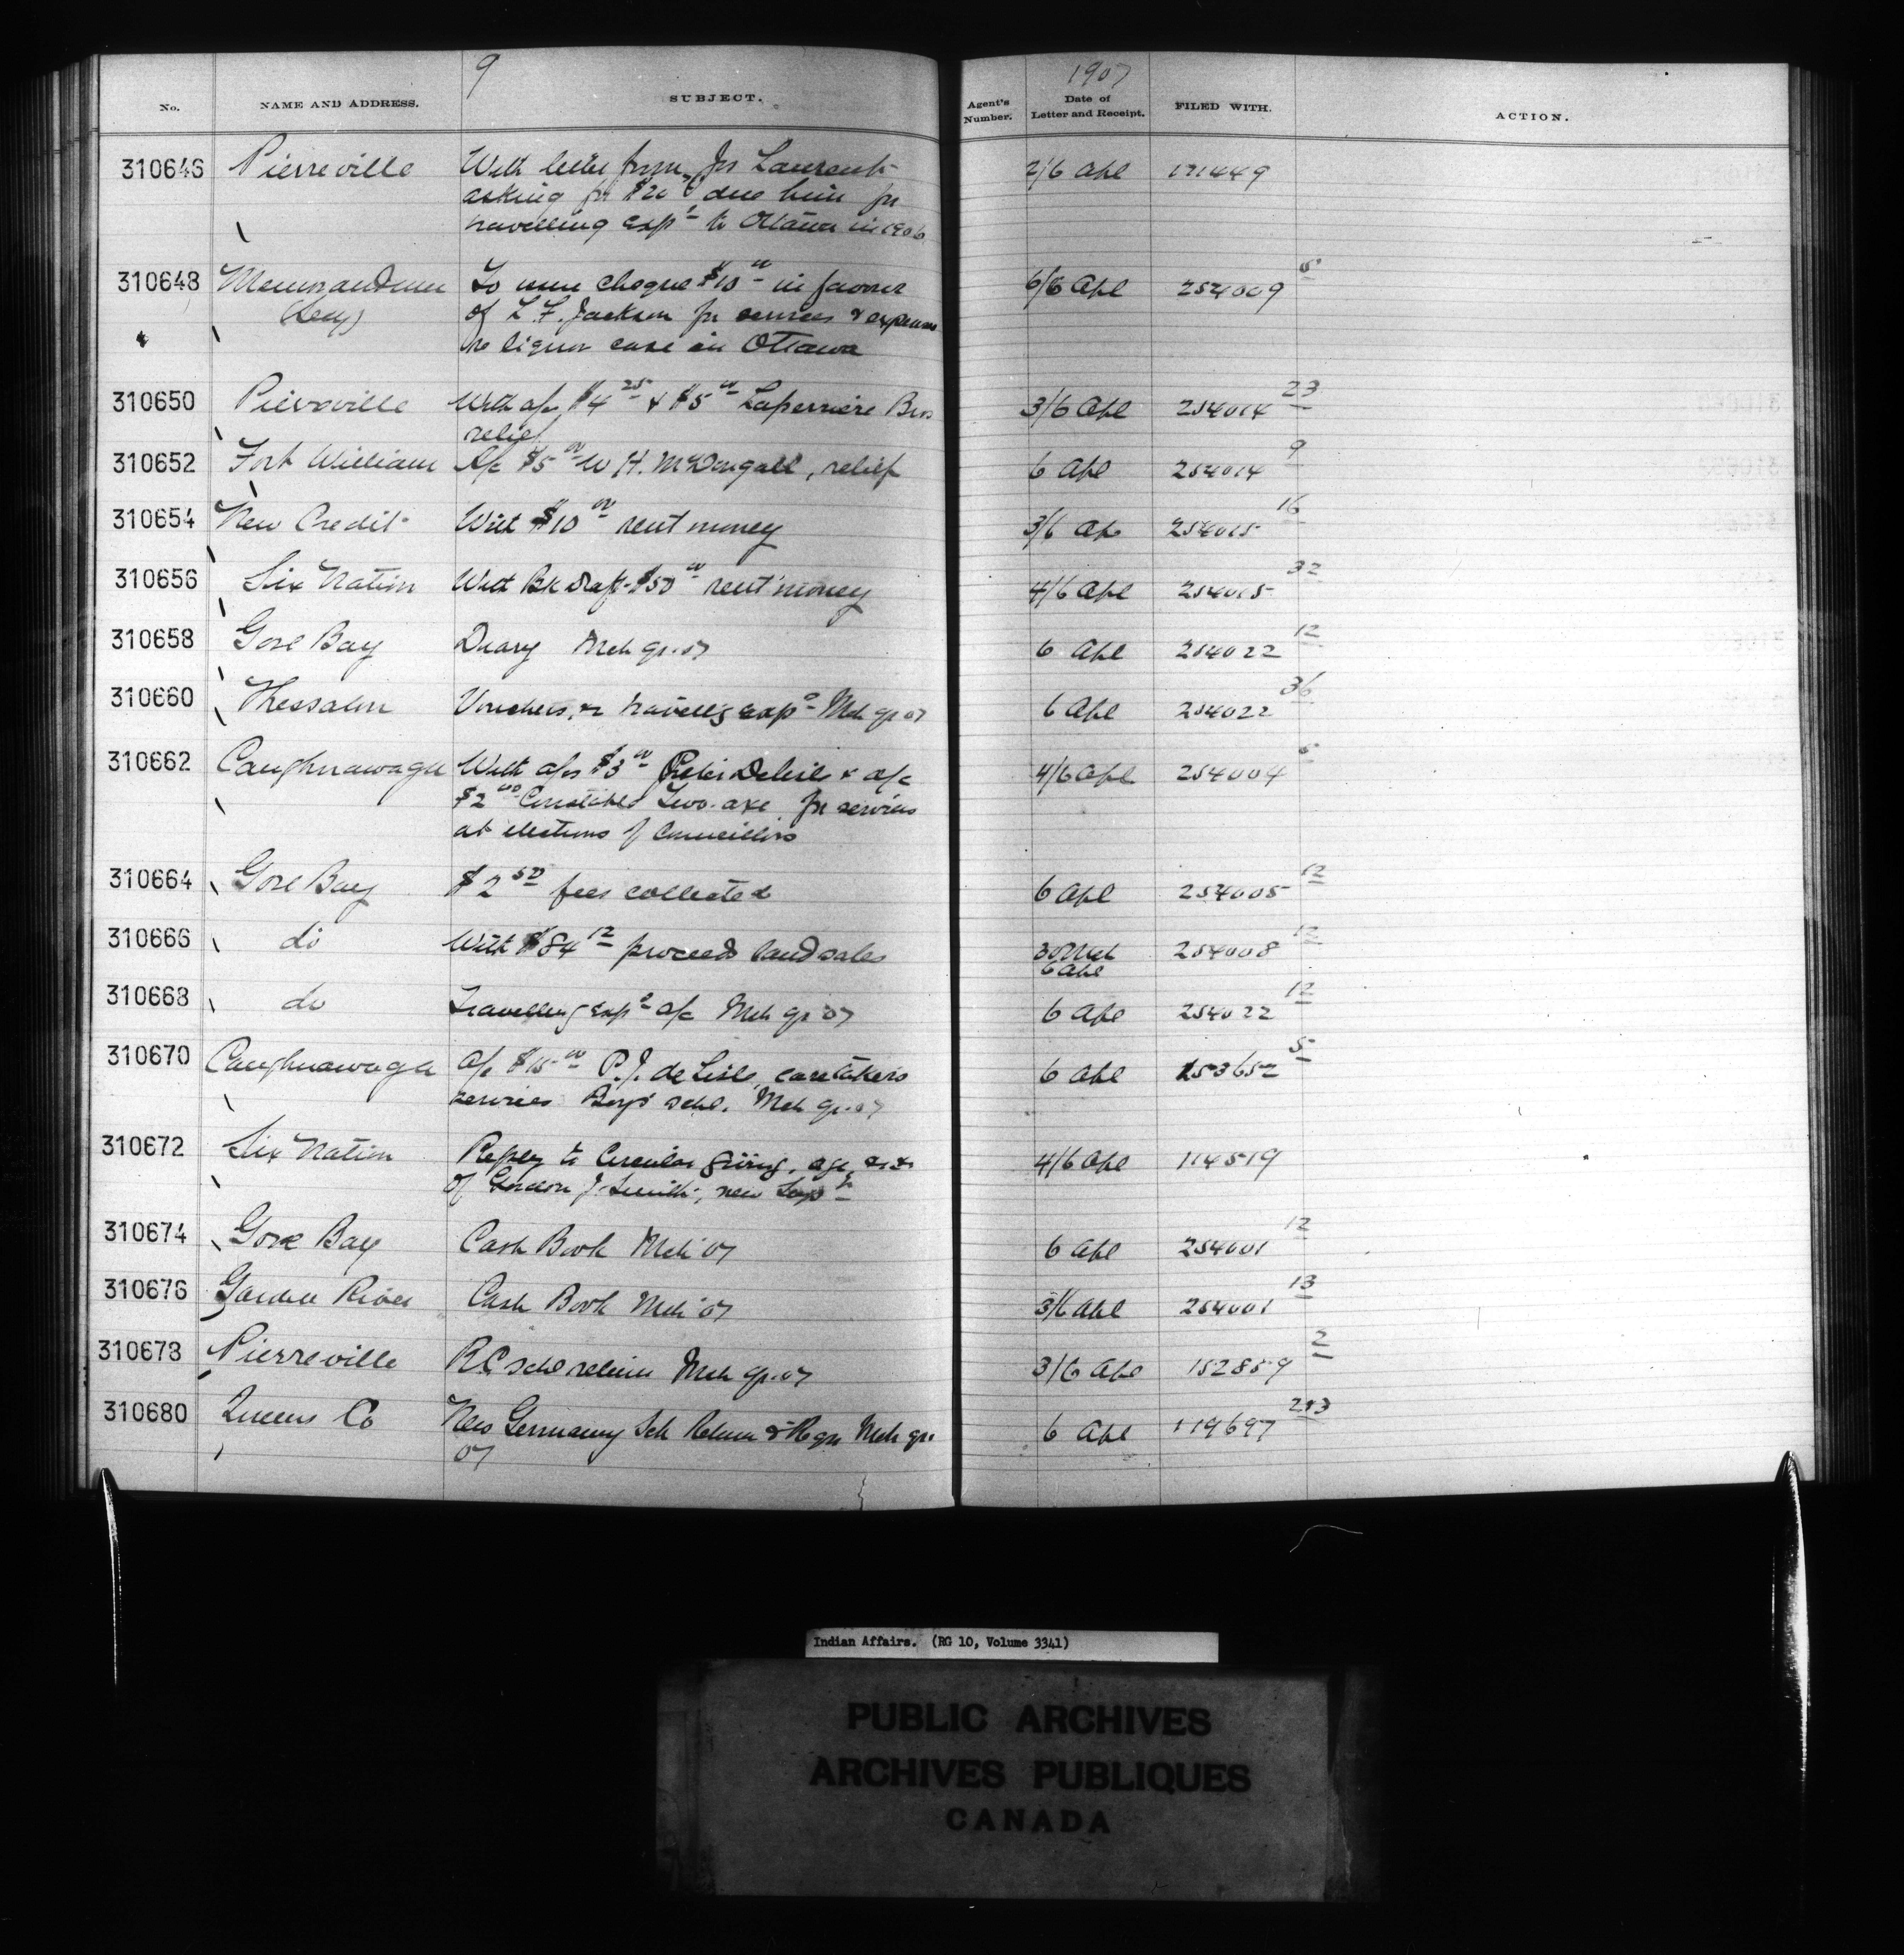 9
1907
No. NAME AND ADDRESS. SUBJECT. Agent's Number. Date of Letter and Receipt. FILED WITH. ACTION.
310646 Pierreville With letter from Jos Laurent 2/6 Apl 171449
asking for $20 due him for
travelling exps to Ottawa in 1906
310648 Memorandum To issue cheque $10 00 in favour 6/6 Apl 254009 5
(Secy) of L. F. Jackson for services & expenses
re liquor case in Ottawa
310650 Pierreville With a/cs $4 25 & $5 00 Laperriere Bros 3/6 Apl 254014 23
relief
310652 Fort William A/c $5 00 W H. McDougall, relief 6 Apl 254014 9
310654 New Credit With $10 00 rent money 3/6 Apl 254015 16
310656 Six Nation With Bk draft $50 00 rent money 4/6 Apl 254015 32
310658 Gore Bay Diary Mch qr. 07 6 Apl 254022 12
310660 Thessalon Vouchers, re travellg exps Mch qr 07 6 Apl 254022 36
310662 Caughnawaga With a/cs $3 00 Peter Delisle & a/c 4/6 Apl 254004 5
$2 00 Constable Two-axe for services
at elections of Councillors
310664 Gore Bay $2 50 fees collected 6 Apl 254005 12
310666 do With $84 12 proceeds land sales 30 Mch 254008 12
6 Apl
310668 do Travelling exps a/c Mch qr 07 6 Apl 254022 12
310670 Caughnawaga A/c $15 00 P. J. de Lisle, caretakers 6 Apl 253652 5
services Boys' schl. Mch qr. 07
310672 Six Nation Reply to Circular giving age 4/6 Apl 114519
of Gordon J. Smith, new
310674 Gore Bay Cash Book Mch '07 6 Apl 254001 12
310676 Garden River Cash Book Mch '07 3/6 Apl 254001 13
310678 Pierreville R.C. schl return Mch qr. 07 3/6 Apl 152859 2
310680 Queens Co New Germany Sch Return & Regr Mch qr. 6 Apl 119697 213
07
Indian Affairs. (RG 10, Volume 3341)
PUBLIC ARCHIVES
ARCHIVES PUBLIQUES
CANADA